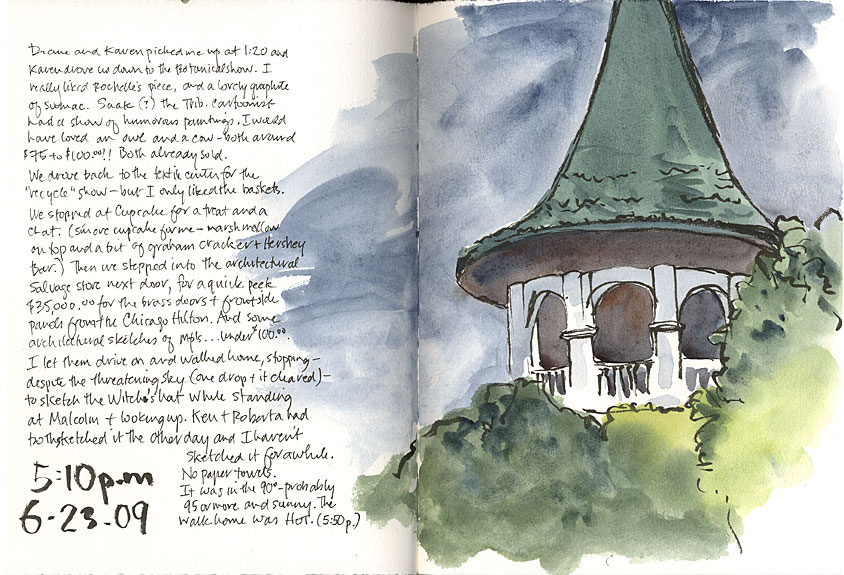 Diane and Karen picked me up at 1:20 and
Karen drove us down to the Botanical show. I
really liked Rochelle's piece, and a lovely graphite
of sumac. Saak (?) the Trib. cartoonist
had a show of humorous paintings, I would
have loved an owl and a cow - both around
$75 to $100.00!! Both already sold.
We drove back to the textile center for the
"recycle" show - but I only liked the baskets.
We stopped at Cupcake for a treat and a
chat. (Smore cupcake for me - marshmellow
on top and a bit of graham cracker + Hershey
bar.) Then we stepped into the architectural
salvage store next door, for a quick peek
$35,000.00 for the brass doors + front side
panels from the Chicago Hilton. And some
architectural sketches of Mpls... under $100.00.
I let them drive on and walked home, stopping -
despite the threatening sky (one drop + it cleared) -
to sketch the Witch's hat while standing
at Malcolm + looking up. Ken + Roberta had
both sketched it the other day and I haven't
sketched it for awhile.
No paper towels.
It was in the 90°- probably
95 or more and sunny. The
walk home was HOT. (5:50p.)
5:10p.m
6-23-09